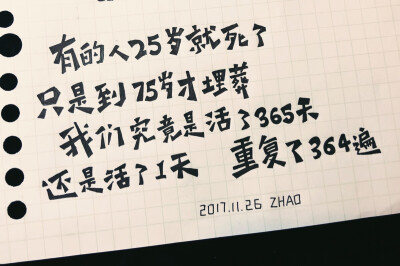 有的人25岁就死了
只是到75岁才埋葬
我们究竟是活了365天
还是活了1天 重复了364遍
2017.11.26 ZHAO